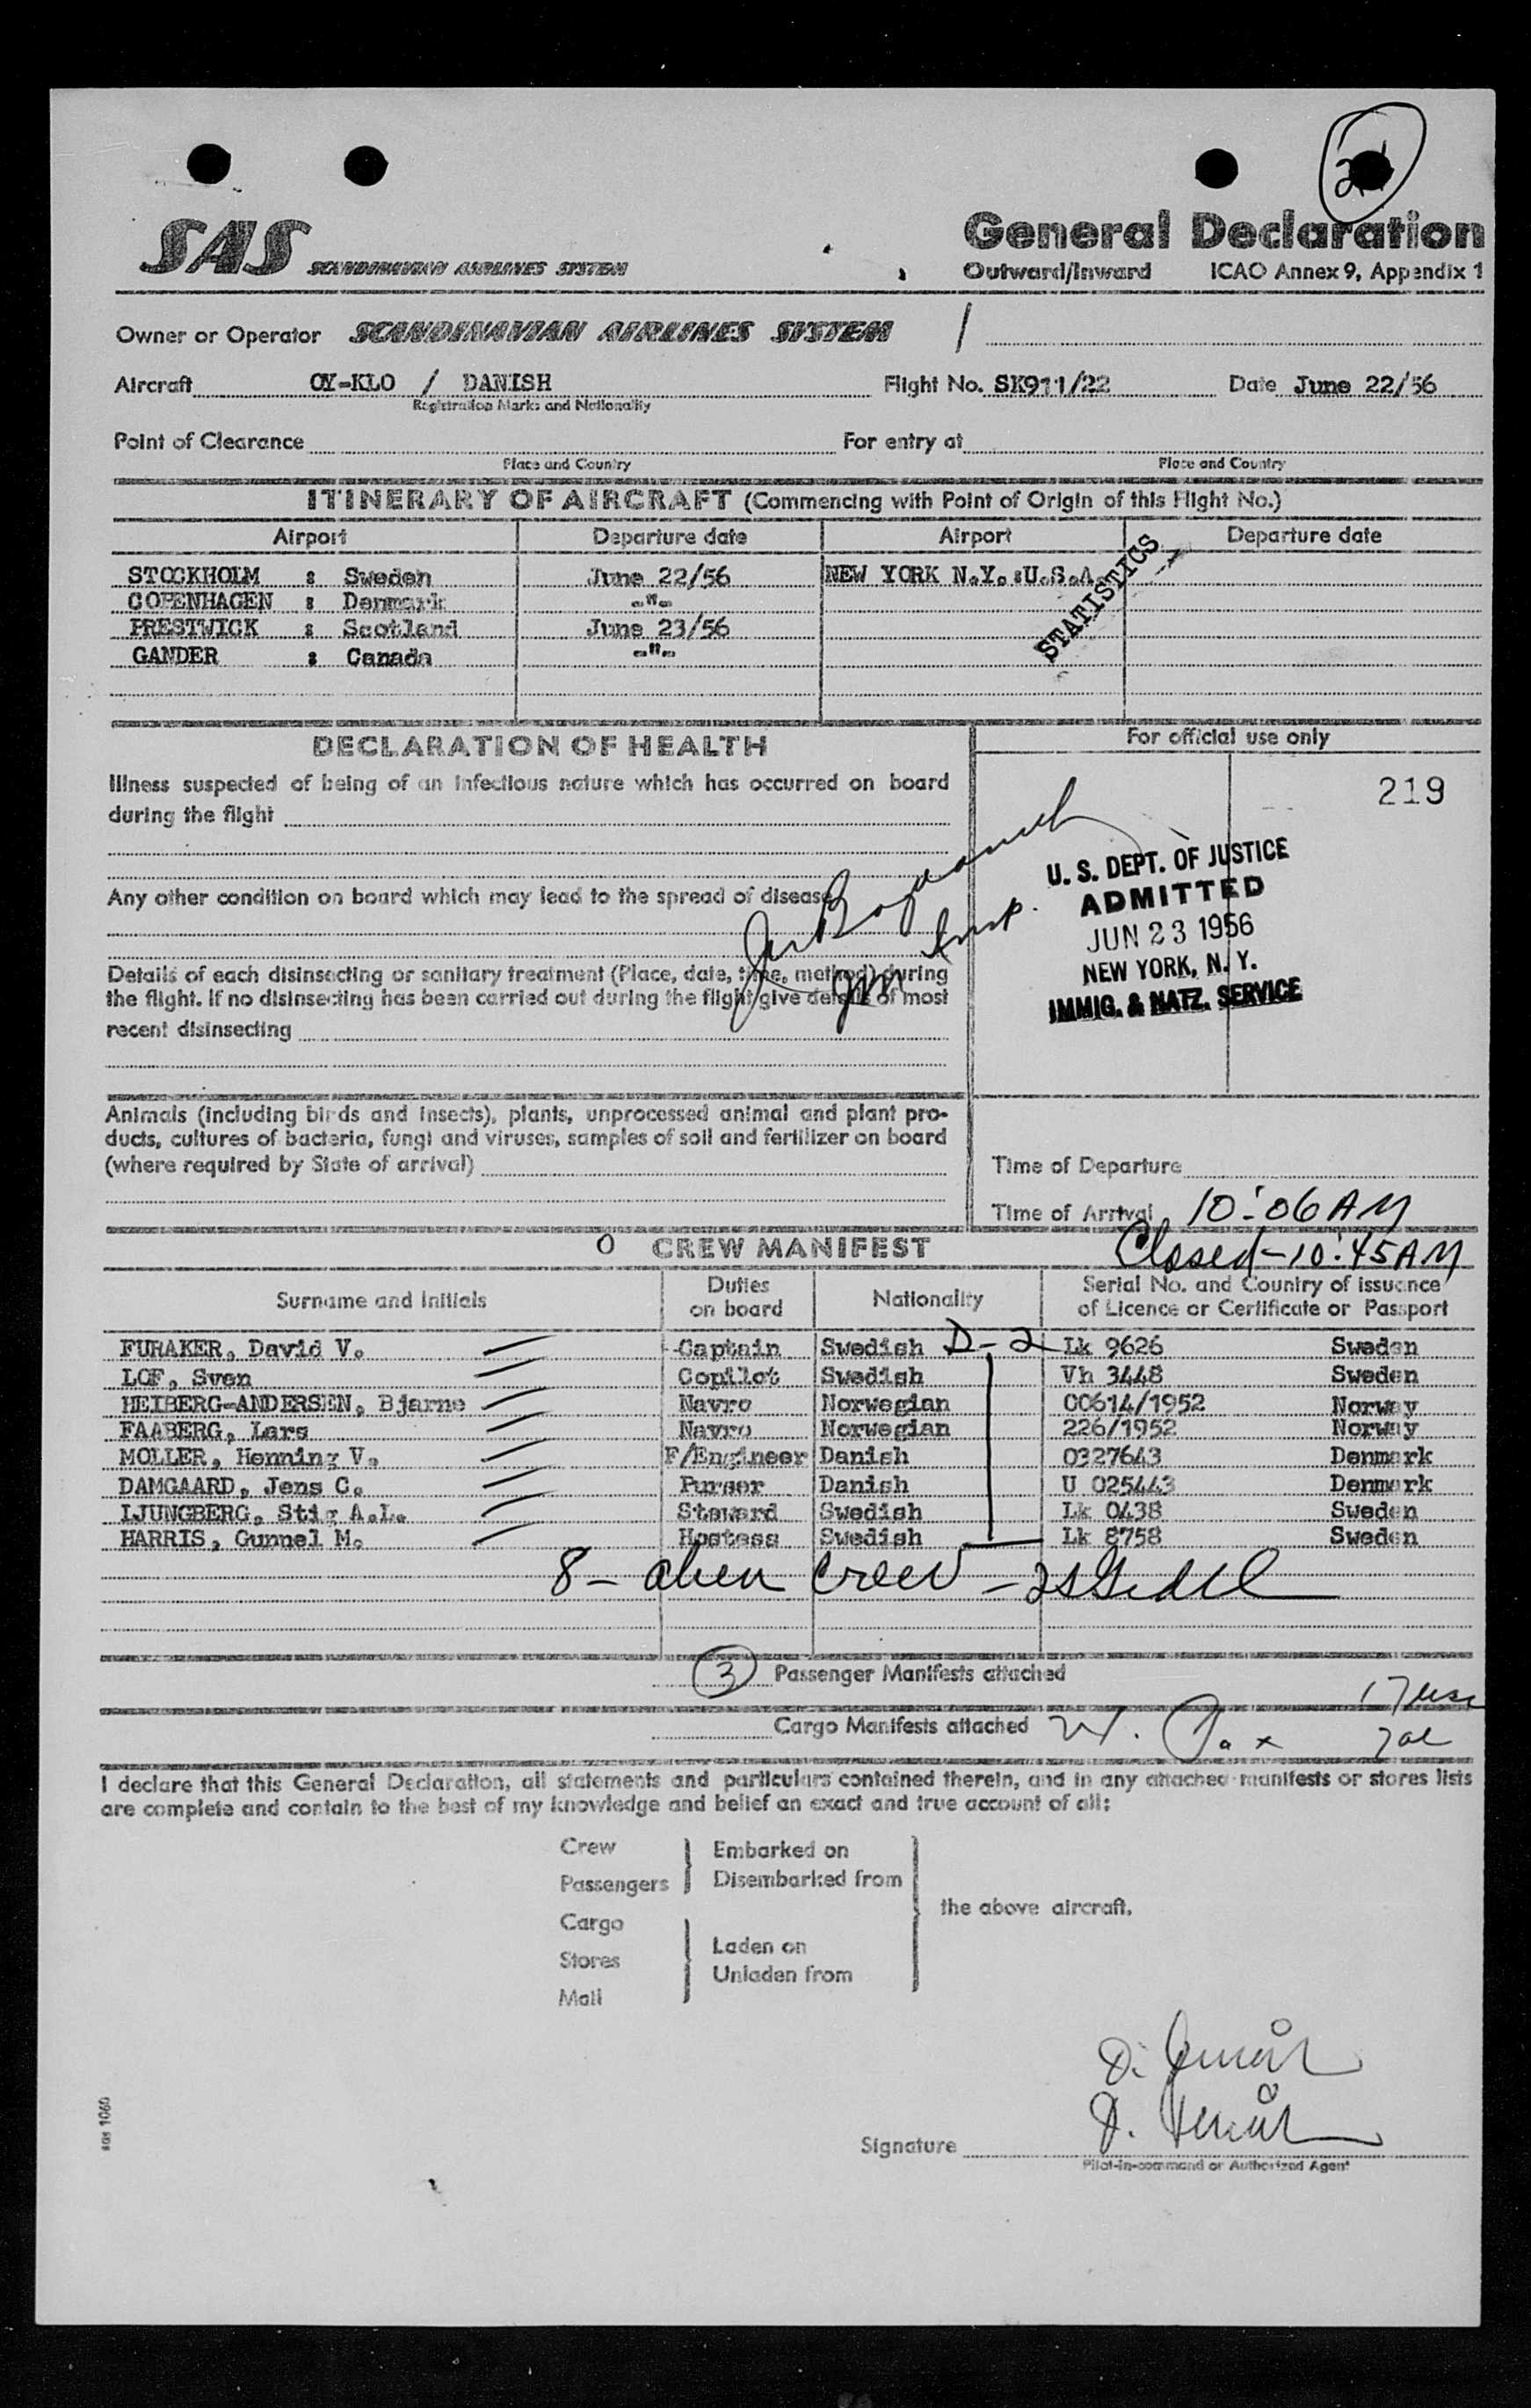 SAS SCANDINAVIAN AIRLINES SYSTEM
General Declaration
Outward/Inward ICAO Annex 9, Appendix 1
Owner or Operator SCANDINAVIAN AIRLINES SYSTEM
Aircraft OY-KLO / DANISH Flight No. SK911/22 Date June 22/56
Registration Marks and Nationality
Point of Clearance For entry at
Place and Country Place and Country
ITINERARY OF AIRCRAFT (Commencing with Point of Origin of this Flight No.)
Airport Departure date Airport Departure date
STOCKHOLM : Sweden June 22/56 NEW YORK N.Y. :U.S.A.
COPENHAGEN : Denmark -"-
PRESTWICK : Scotland June 23/56
GANDER : Canada -"-
STATISTICS
DECLARATION OF HEALTH
Illness suspected of being of an infectious nature which has occurred on board
during the flight
Any other condition on board which may lead to the spread of disease
Details of each disinsecting or sanitary treatment (Place, date, time, method) during
the flight. If no disinsecting has been carried out during the flight give details of most
recent disinsecting
Animals (including birds and insects), plants, unprocessed animal and plant pro-
ducts, cultures of bacteria, fungi and viruses, samples of soil and fertilizer on board
(where required by State of arrival)
For official use only
219
U. S. DEPT. OF JUSTICE
ADMITTED
JUN 23 1956
NEW YORK, N. Y.
IMMIG. & NATZ. SERVICE
Insp.
Time of Departure
Time of Arrival 10:06 AM
Closed - 10:45 AM
CREW MANIFEST
Surname and Initials Duties on board Nationality Serial No. and Country of issuance of Licence or Certificate or Passport
FURAKER, David V. Captain Swedish D-2 Lk 9626 Sweden
LOF, Sven Copilot Swedish Vh 3448 Sweden
HEIBERG-ANDERSEN, Bjarne Navro Norwegian 00614/1952 Norway
FAABERG, Lars Navro Norwegian 226/1952 Norway
MOLLER, Henning V. F/Engineer Danish 0327643 Denmark
DAMGAARD, Jens C. Purser Danish U 025443 Denmark
LJUNGBERG, Stig A.L. Steward Swedish Lk 0438 Sweden
HARRIS, Gunnel M. Hostess Swedish Lk 8758 Sweden
8 - alien crew -
3 Passenger Manifests attached
Cargo Manifests attached
I declare that this General Declaration, all statements and particulars contained therein, and in any attached manifests or stores lists
are complete and contain to the best of my knowledge and belief an exact and true account of all:
Crew
Passengers
Embarked on
Disembarked from
Cargo
Stores
Mail
Laden on
Unladen from
the above aircraft.
Signature
Pilot-in-command or Authorized Agent
sas 1060